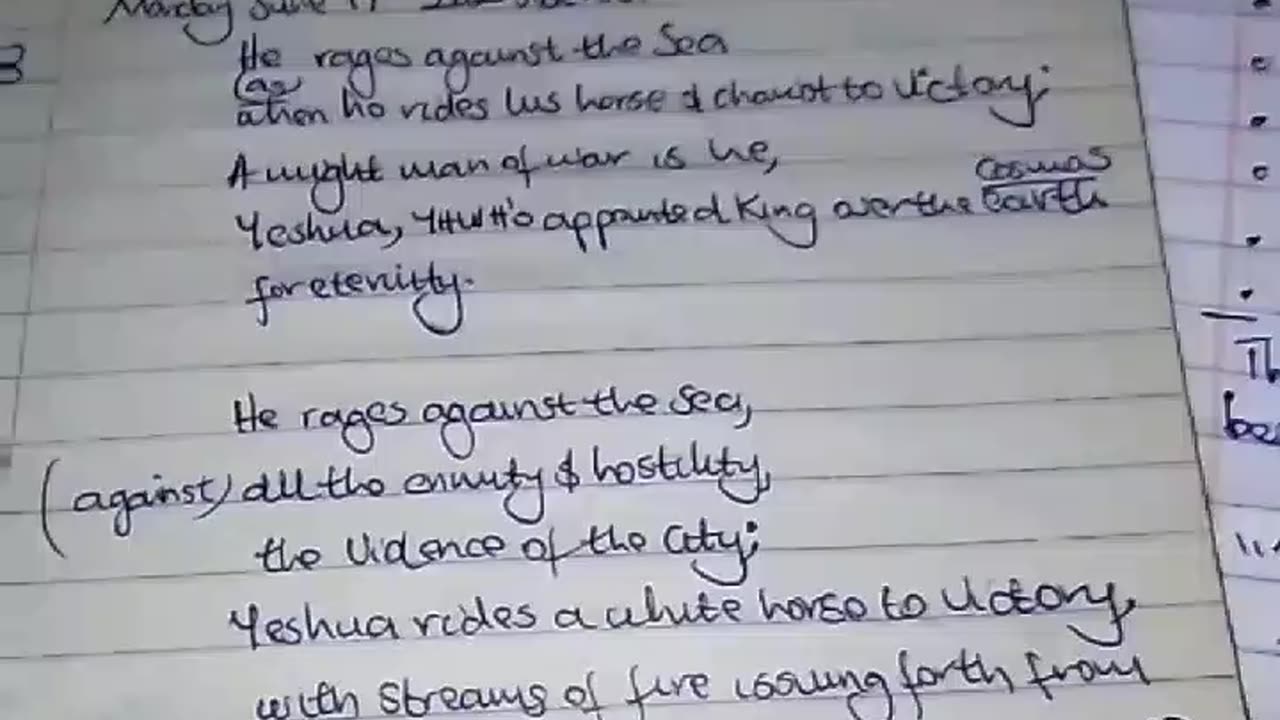 Monday June 17
3
He rages against the Sea
(as)
when he rides his horse & chariot to victory;
A might man of war is he,
cosmas
Yeshua, YHWH's appointed King over the earth
for eternitty.
He rages against the Sea,
(against) all the enmity & hostility,
the violence of the City;
Yeshua rides a white horse to victory,
with streams of fire issuing forth from
Th
be
"